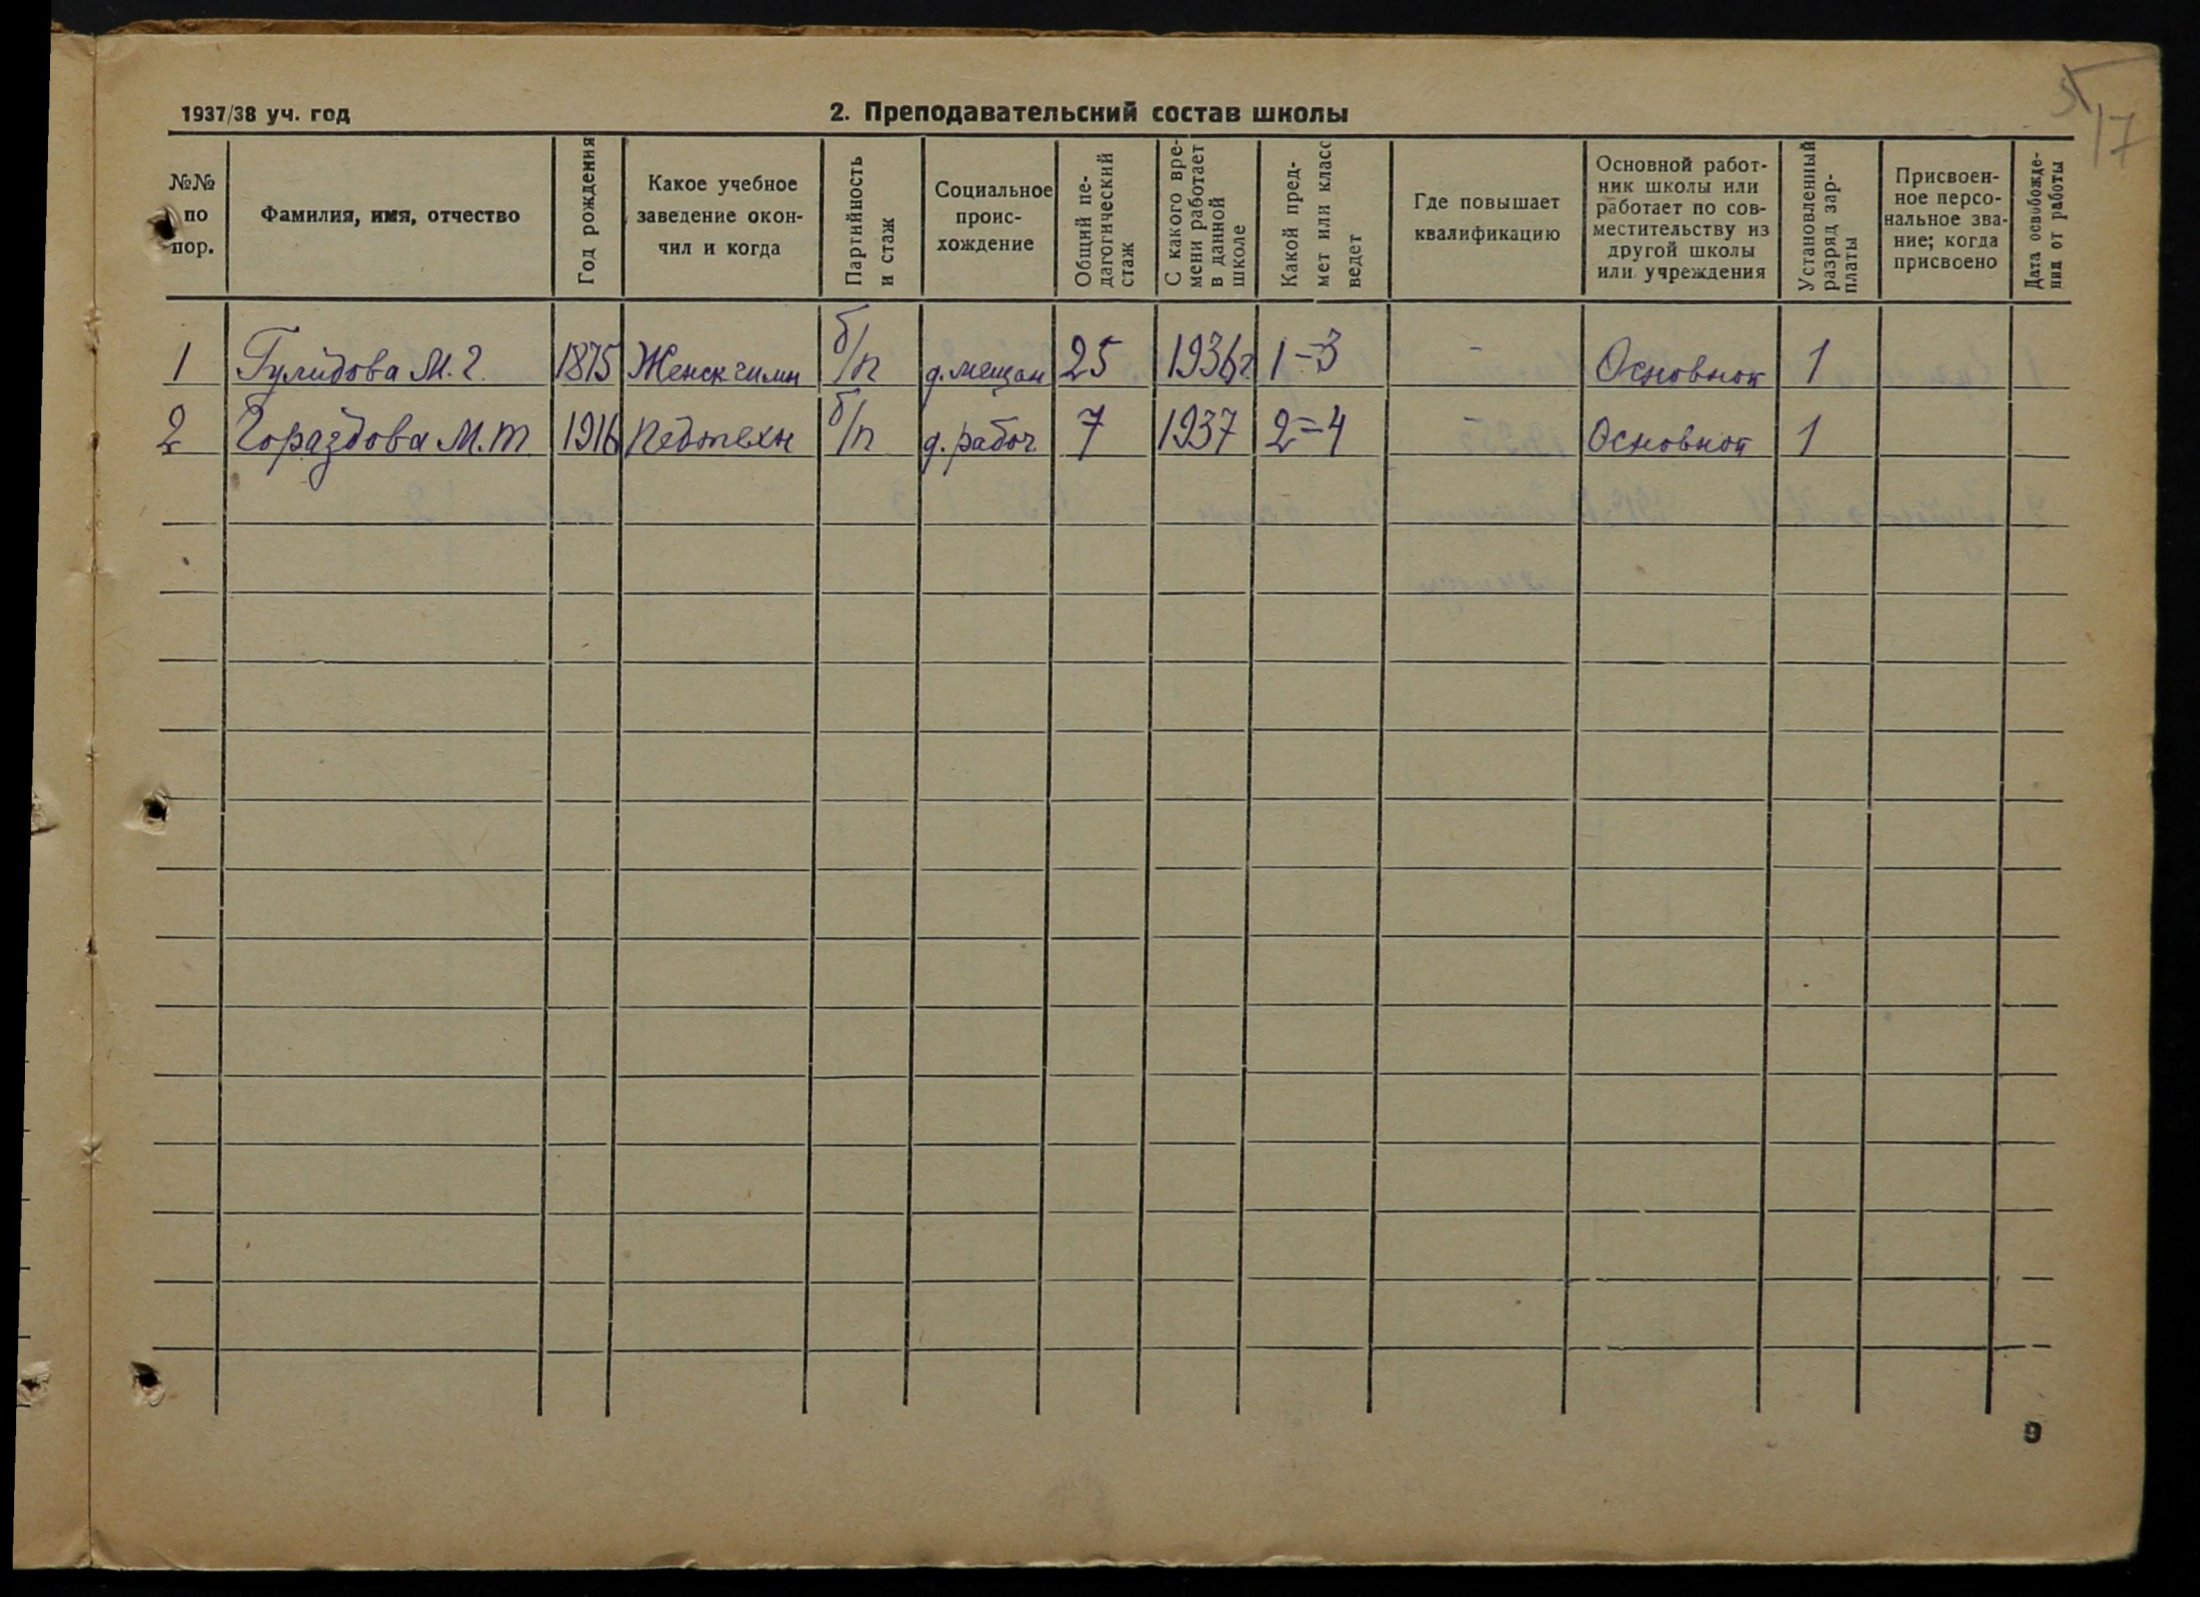 5/17
1937/38 уч. год
2. Преподавательский состав школы
№№ по пор.
Фамилия, имя, отчество
Год рождения
Какое учебное заведение окончил и когда
Партийность и стаж
Социальное происхождение
Общий педагогический стаж
С какого времени работает в данной школе
Какой предмет или класс ведет
Где повышает квалификацию
Основной работник школы или работает по совместительству из другой школы или учреждения
Установленный разряд зарплаты
Присвоенное персональное звание; когда присвоено
Дата освобождения от работы
1 Гулидова М. Г. 1875 Женск. гимн б/п д. мещан 25 1936г. 1-3 - Основной 1
2 Гораздова М. Т. 1916 Педтехн б/п д. рабоч. 7 1937 2=4 - Основной 1
9